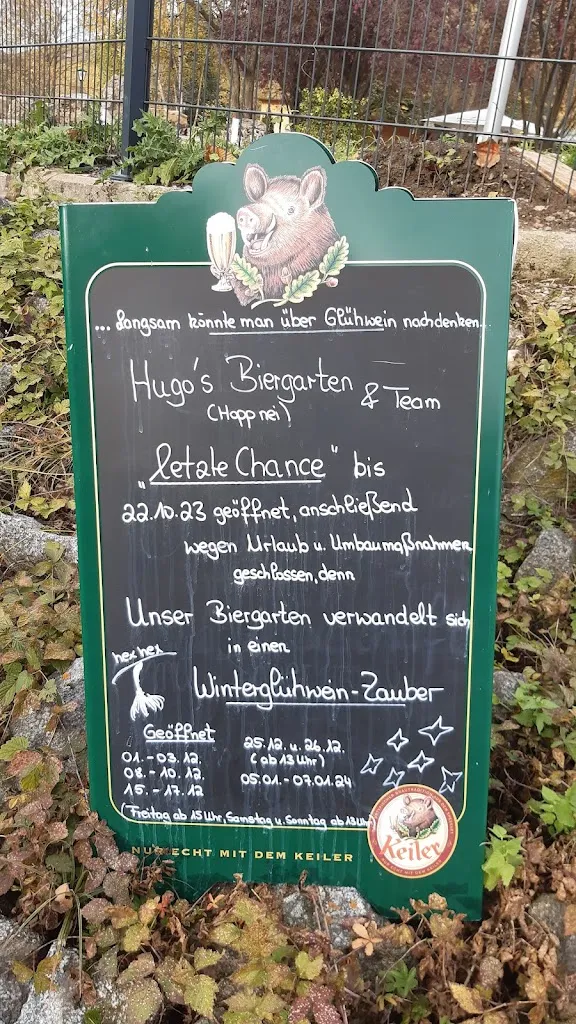 ... Langsam könnte man über Glühwein nachdenken...
Hugo's Biergarten & Team
(Hopp nei)
„letzte Chance" bis
22.10.23 geöffnet, anschließend
wegen Urlaub u. Umbaumaßnahmen
geschlossen, denn
Unser Biergarten verwandelt sich
in einen
hex hex
Winterglühwein-Zauber
Geöffnet
01. - 03.12.
08. - 10.12.
15. - 17.12
25.12. u. 26.12.
(ab 13 Uhr)
05.01. - 07.01.24
(Freitag ab 15 Uhr, Samstag u. Sonntag ab 13 Uhr)
Keiler
NUR ECHT MIT DEM KEILER